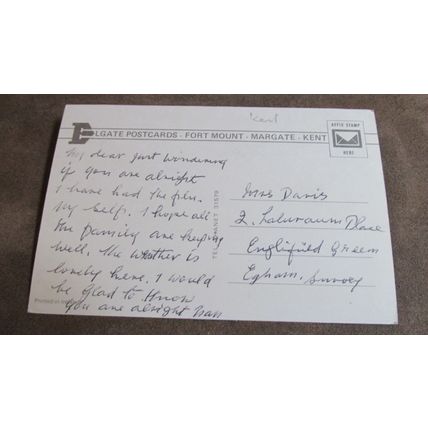 Kent
ELGATE POSTCARDS - FORT MOUNT - MARGATE - KENT
AFFIX STAMP
HERE
My dear just wondering
if you are alright
I have had the flu.
My self. I hope all
the family are keeping
well. the weather is
lovely here. I would
be glad to know
you are alright
TEL. THANET 31579
Printed in
Mrs Davis
2, Place
Englifield Green
Egham, Surrey